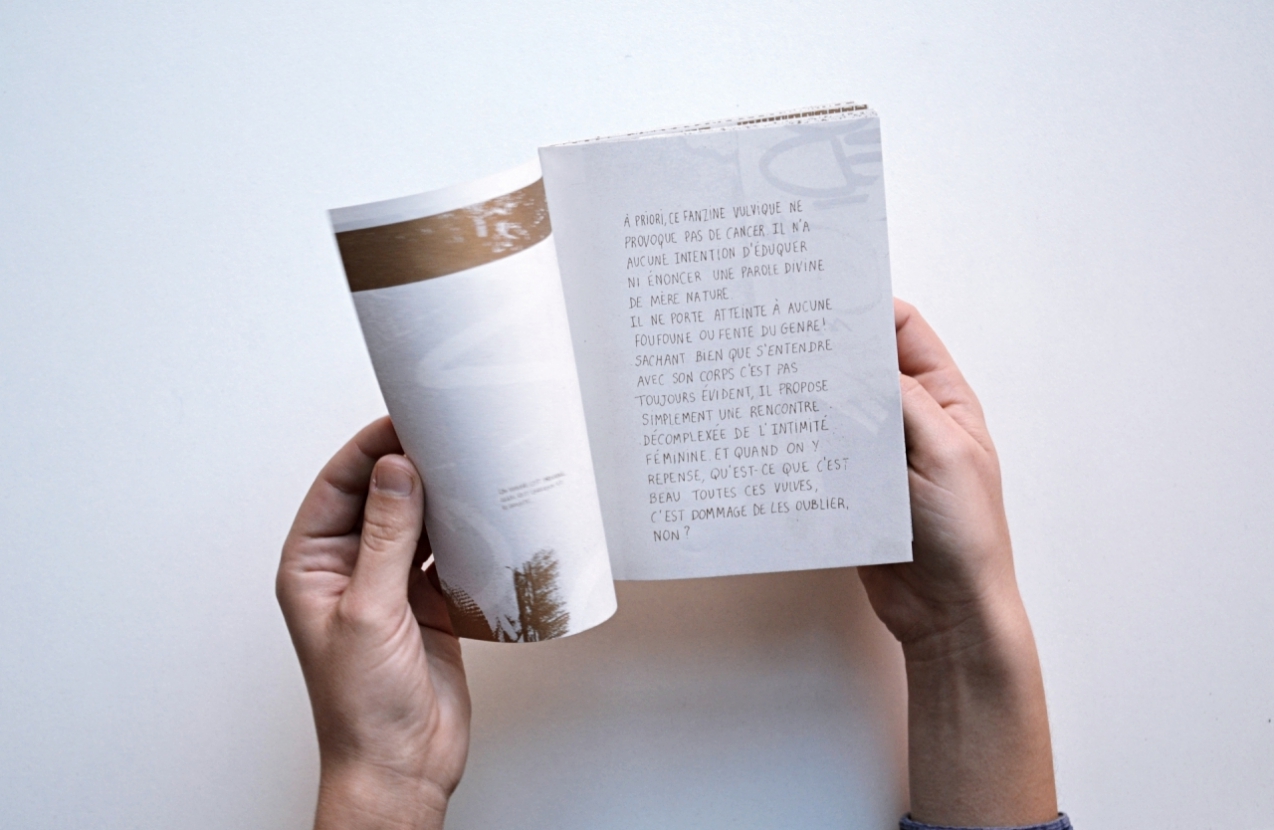 À PRIORI, CE FANZINE VULVIQUE NE
PROVOQUE PAS DE CANCER. IL N'A
AUCUNE INTENTION D'ÉDUQUER
NI ÉNONCER UNE PAROLE DIVINE
DE MÈRE NATURE.
IL NE PORTE ATTEINTE À AUCUNE
FOUFOUNE OU FENTE DU GENRE!
SACHANT BIEN QUE S'ENTENDRE
AVEC SON CORPS C'EST PAS
TOUJOURS ÉVIDENT, IL PROPOSE
SIMPLEMENT UNE RENCONTRE
DÉCOMPLEXÉE DE L'INTIMITÉ
FÉMININE. ET QUAND ON Y
REPENSE, QU'EST-CE QUE C'EST
BEAU TOUTES CES VULVES,
C'EST DOMMAGE DE LES OUBLIER,
NON?